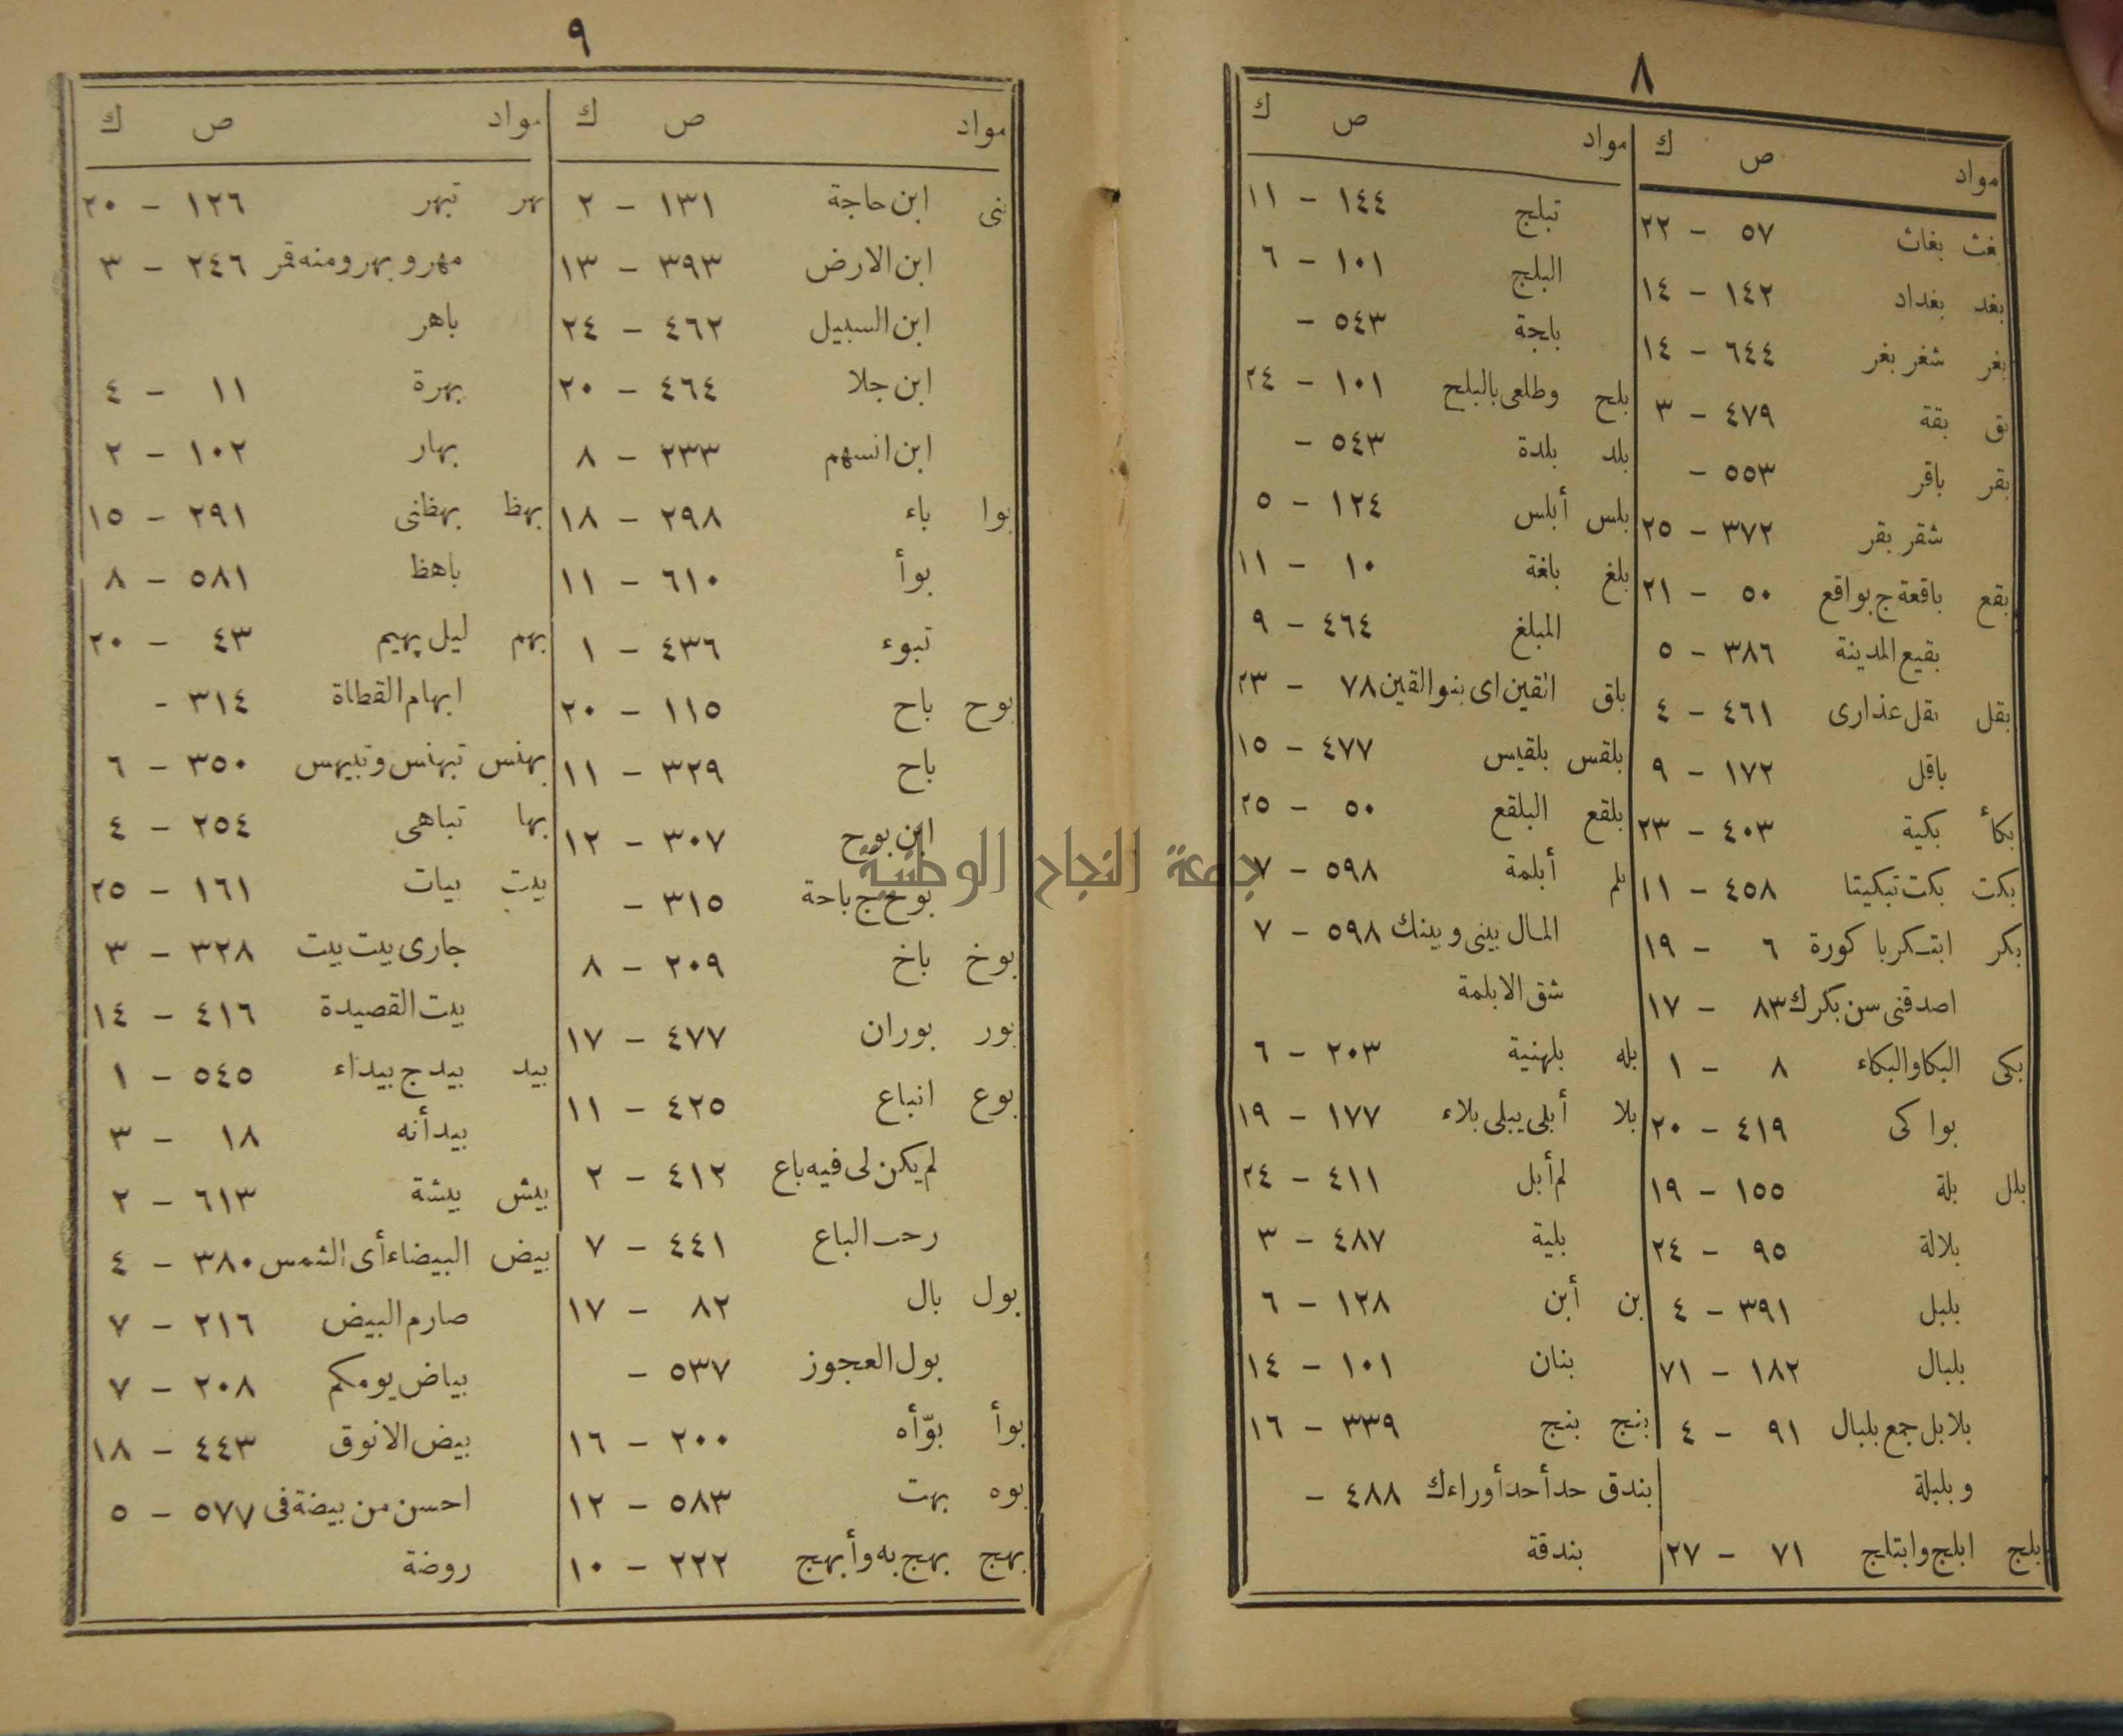 ٨
مواد ص ك
بغث بغاث ٥٧ - ٢٢
بغد بغداد ١٤٢ - ١٤
بغر شغر بغر ٦٤٤ - ١٤
بق بقة ٤٧٩ - ٣
بقر باقر ٥٥٣ -
شقر بقر ٣٧٢ - ٢٥
بقع باقعة ج بواقع ٥٠ - ٢١
بقيع المدينة ٣٨٦ - ٥
بقل بقل عذارى ٤٦١ - ٤
باقل ١٧٢ - ٩
بكأ بكية ٤٠٣ - ٢٣
بكت بكت تبكيتا ٤٥٨ - ١١
بكر ابتكر با كورة ٦ - ١٩
اصدقنى سن بكرك ٨٣ - ١٧
بكى البكا والبكاء ٨ - ١
بوا كى ٤١٩ - ٢٠
بلل بلة ١٥٥ - ١٩
بلالة ٩٥ - ٢٤
بلبل ٣٩١ - ٤
بلبال ١٨٢ - ٧١
بلابل جمع بلبال ٩١ - ٤
وبلبلة
بلج ابلج وابتلج ٧١ - ٢٧
مواد ص ك
تبلج ١٤٤ - ١١
البلج ١٠١ - ٦
باجة ٥٤٣ -
بلح وطلعى بالبلح ١٠١ - ٢٤
بلد بلدة ٥٤٣ -
بلس أبلس ١٢٤ - ٥
بلغ بلغة ١٠ - ١١
المبلغ ٤٦٤ - ٩
بلق القين اى بنو القين ٧٨ - ٢٣
بلقس بلقيس ٤٧٧ - ١٥
بلقع البلقع ٥٠ - ٢٥
بلم أبلمة ٥٩٨ - ٧
المال بينى وبينك ٥٩٨ - ٧
شق الابلمة
بله بلهنية ٢٠٣ - ٦
بلا أبلى يبلى بلاء ١٧٧ - ١٩
لم أبل ٤١١ - ٢٤
بلية ٤٨٧ - ٣
بن أبن ١٢٨ - ٦
بنان ١٠١ - ١٤
بنج بنج ٣٣٩ - ١٦
بندق حدأ حدأ وراءك ٤٨٨ -
بندقة
٩
مواد ص ك
بنى ابن حاجة ١٣١ - ٢
ابن الارض ٣٩٣ - ١٣
ابن السبيل ٤٦٢ - ٢٤
ابن جلا ٤٦٤ - ٢٠
ابن انسهم ٢٣٣ - ٨
بوا باء ٢٩٨ - ١٨
بوأ ٦١٠ - ١١
تبوء ٤٣٦ - ١
بوح باح ١١٥ - ٢٠
باح ٣٢٩ - ١١
ابن بوح ٣٠٧ - ١٢
بوح ج باحة ٣١٥ -
بوخ باخ ٢٠٩ - ٨
بور بوران ٤٧٧ - ١٧
بوع انباع ٤٢٥ - ١١
لم يكن لى فيه باع ٤١٢ - ٢
رحب الباع ٤٤١ - ٧
بول بال ٨٢ - ١٧
بول العجوز ٥٣٧ -
بوأ بوّأه ٢٠٠ - ١٦
بوه بهت ٥٨٣ - ١٢
بهج بهج به وأبهج ٢٢٢ - ١٠
مواد ص ك
بهر تبهر ١٢٦ - ٢٠
مهر وبهر ومنه قمر ٢٤٦ - ٣
باهر
بهرة ١١ - ٤
بهار ١٠٢ - ٢
بهظ بهظنى ٢٩١ - ١٥
باهظ ٥٨١ - ٨
بهم ليل بهيم ٤٣ - ٢٠
ابهام القطاة ٣١٤ -
بهنس تبهنس وتبيهس ٣٥٠ - ٦
بها تباهى ٢٥٤ - ٤
بيت بيات ١٦١ - ٢٥
جارى بيت بيت ٣٢٨ - ٣
بيت القصيدة ٤١٦ - ١٤
بيد بيد ج بيداء ٥٤٥ - ١
بيدأنه ١٨ - ٣
بيش بيشة ٦١٣ - ٢
بيض البيضاء أى الشمس ٣٨٠ - ٤
صارم البيض ٢١٦ - ٧
بياض يومكم ٢٠٨ - ٧
بيض الانوق ٤٤٣ - ١٨
احسن من بيضة فى ٥٧٧ - ٥
روضة
جمعة النجاح الوطنية